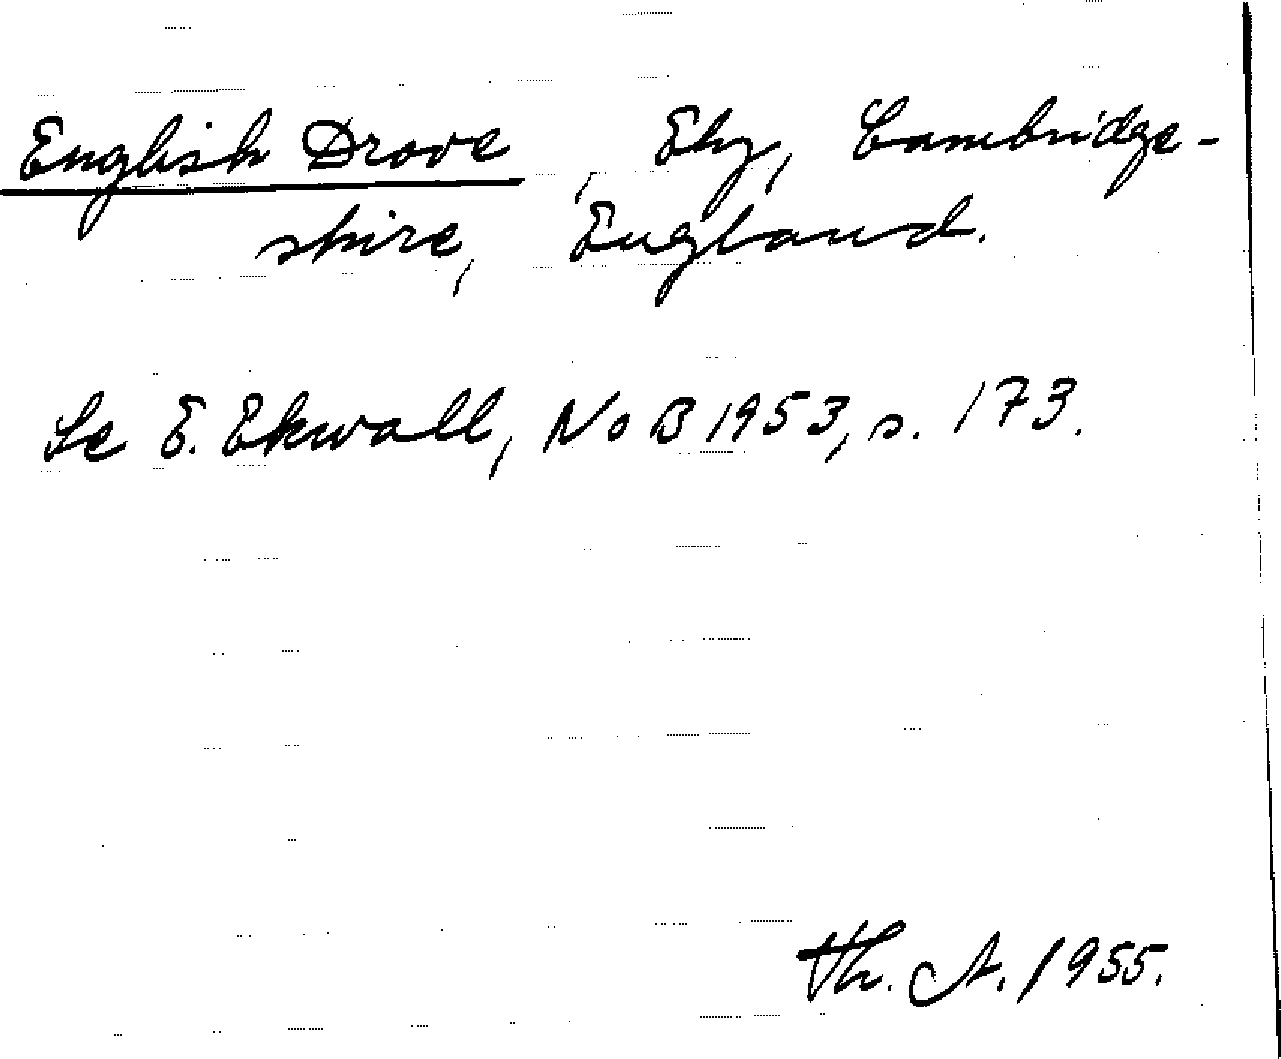 English Drove, Ely, Cambridge-
shire, England.
Se E. Ekwall, NoB 1953, s. 173.
Th. A. 1955.